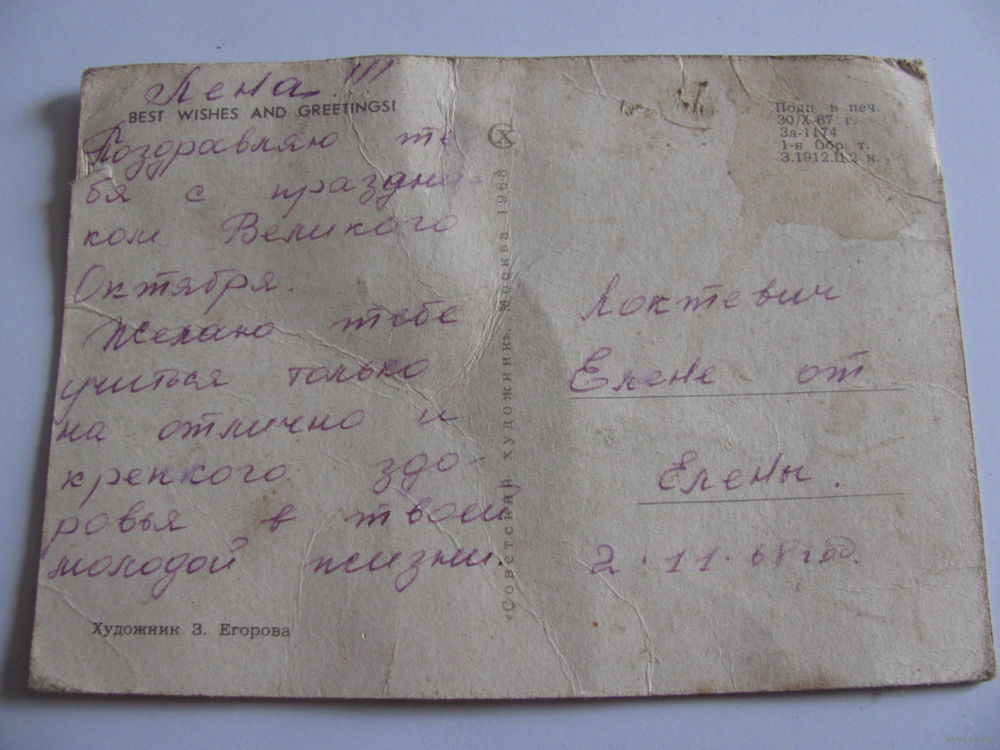 Лена!!!
BEST WISHES AND GREETINGS!
Поздравляю те
бя с праздни-
ком Великого
Октября.
Желаю тебе
учиться только
на отлично и
крепкого здо-
ровья в твоей
молодой жизни.
Художник З. Егорова
«Советский художник». Москва 1968
Подп. в печ.
30/X-67 г.
За-1174
1-я Обр. т.
З.1912.Ц.2 к.
Локтевич
Елене от
Елены.
2.11.68 год.